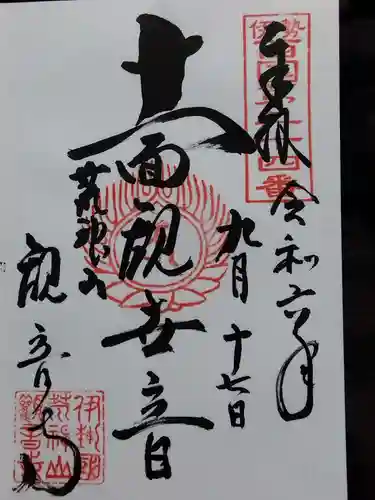 奉拝 令和六年
九月十七日
十一面観世音
荒神山
観音寺
伊勢
西国第二十四番
伊勢國
荒神山
観音寺